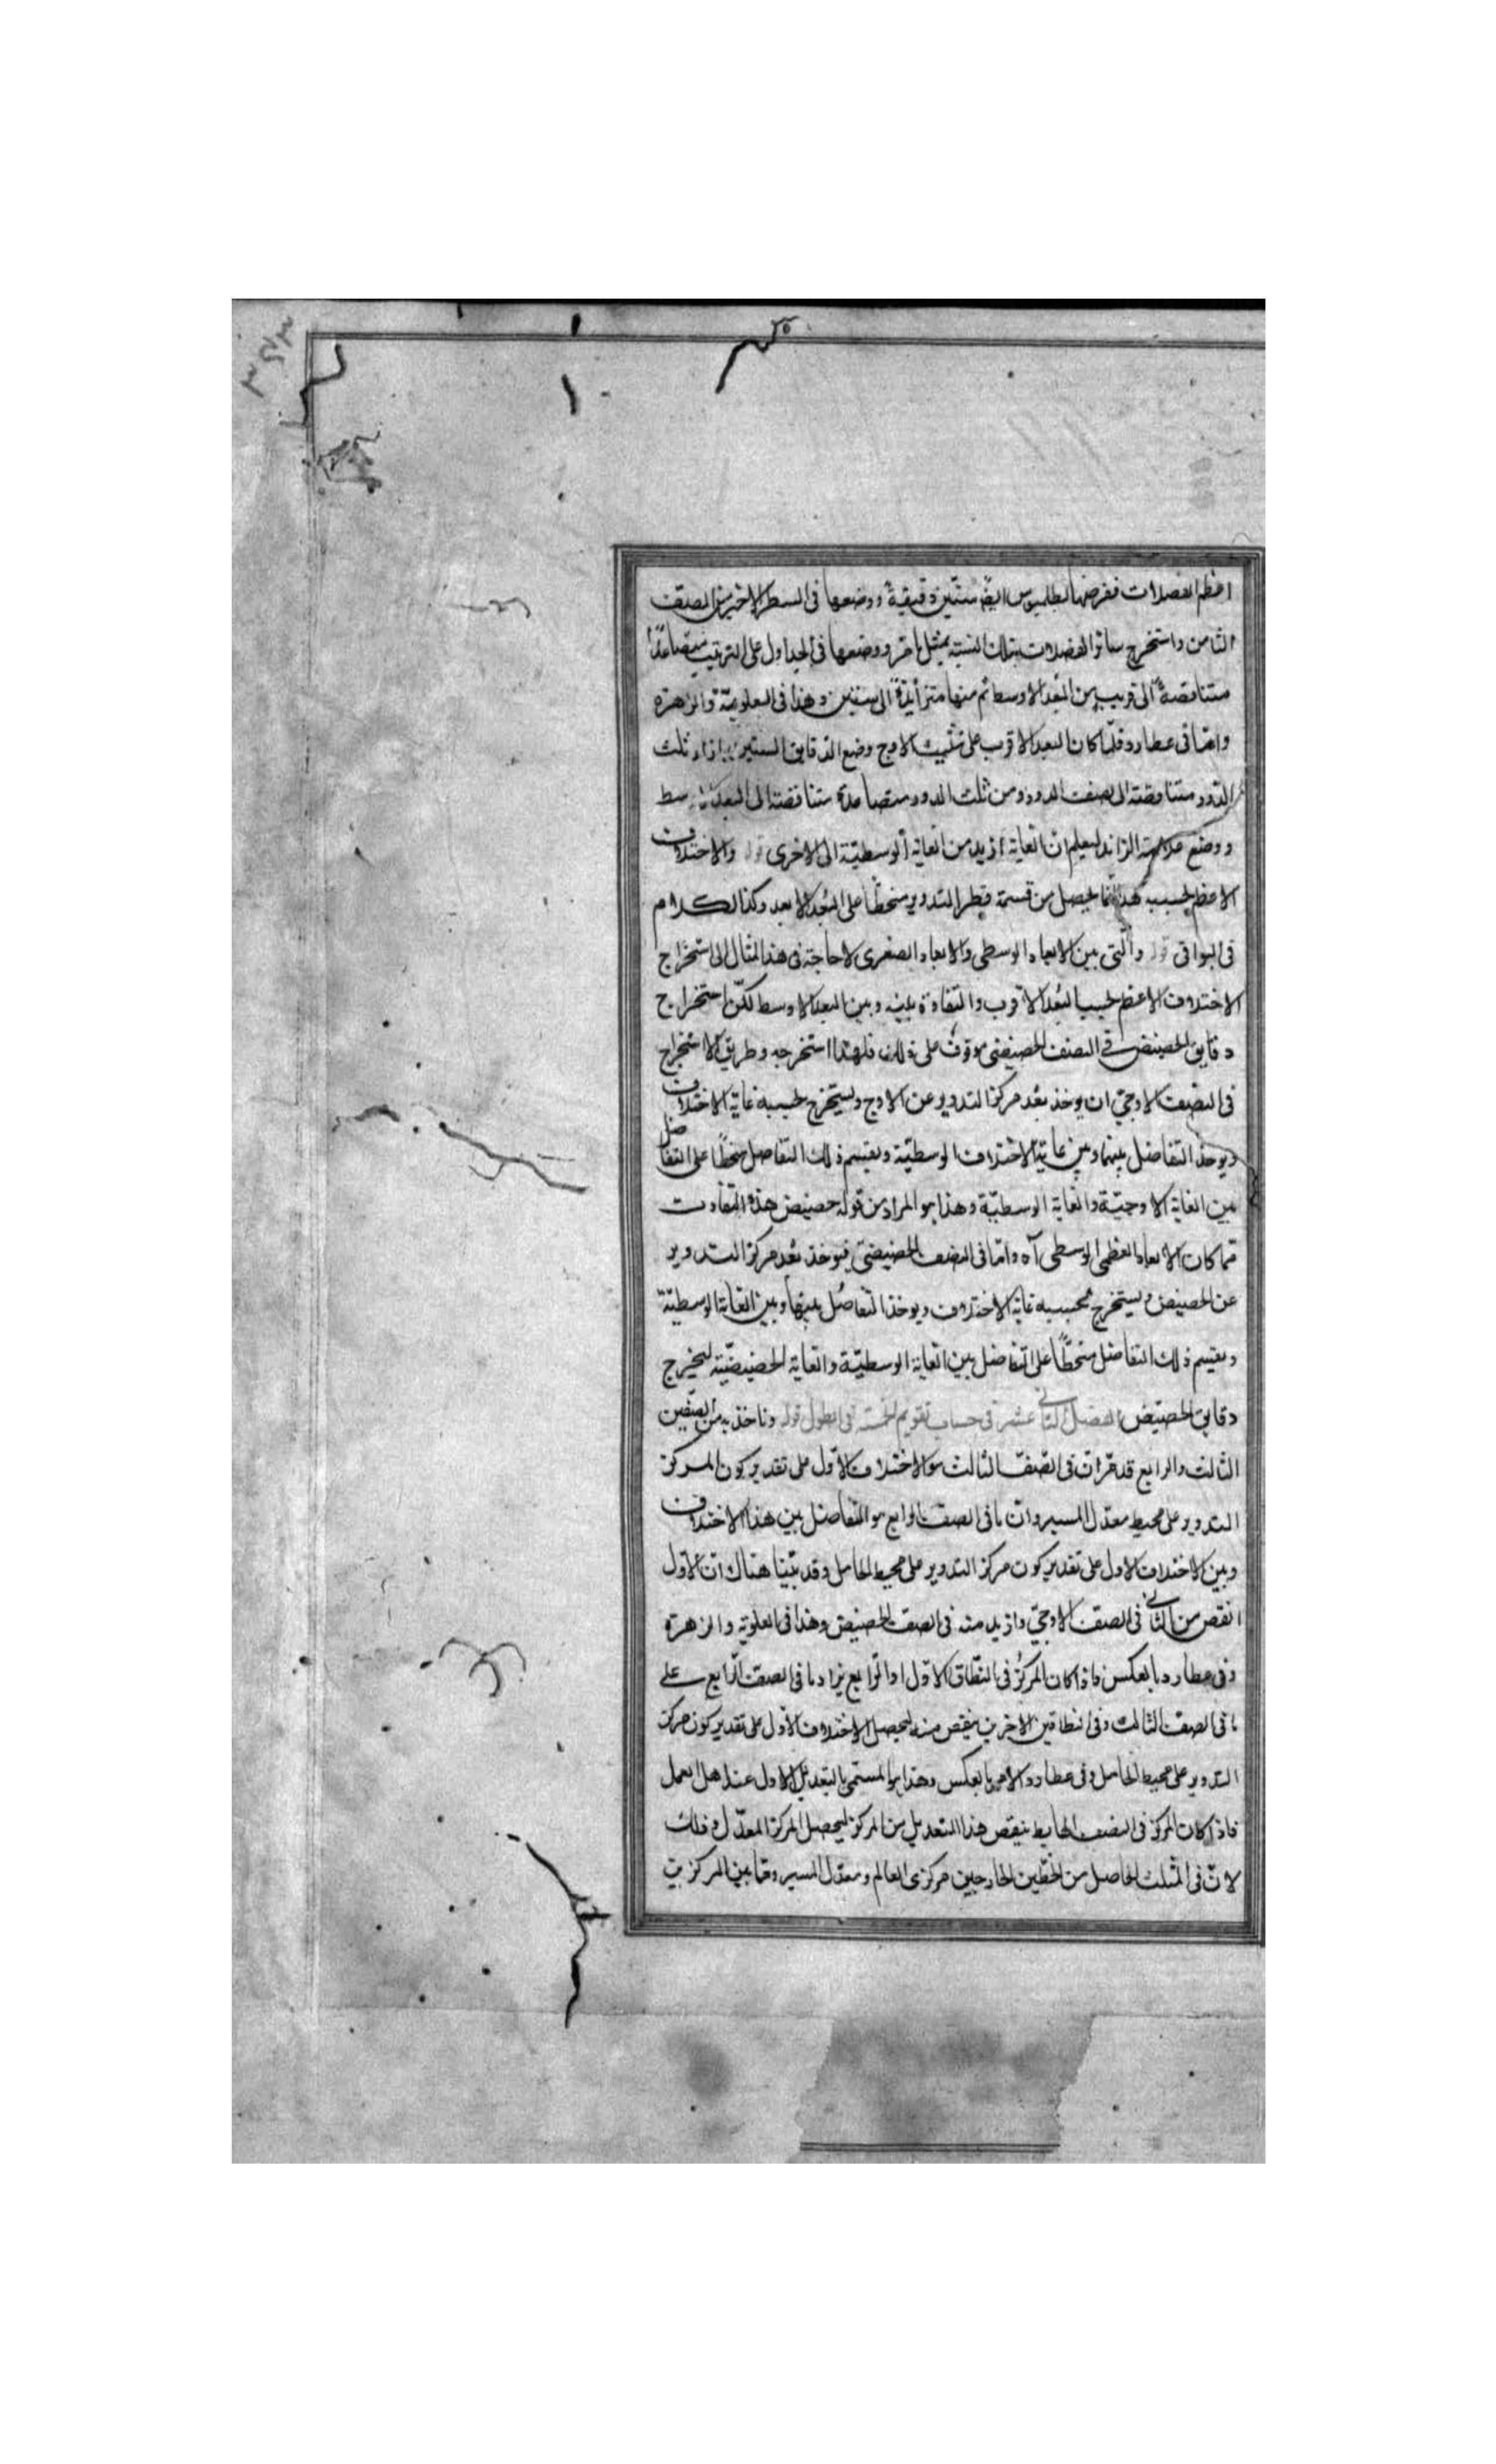 اعظم الفضلات ففرضها بطلميوس ايضا ستين دقيقة ووضعها فى السطر الاخير من الصف
الثامن واستخرج سائر الفضلات بتلك النسبة بمثل ما مر ووضعها فى الجداول على الترتيب متصاعدا
متناقصة الى قريب من البعد الاوسط ثم منها متزائدة الى ستين وهذا فى العلوية والزهرة
واما فى عطارد فلما كان البعد الاقرب على تثليث الاوج وضع الدقايق الستين بازاء ثلث
الدور متناقصة الى نصف الدور ومن ثلث الدور متصاعدة متناقصة الى البعد الاوسط
ووضع علامة الزائد ليعلم ان الغاية ازيد من الغاية الوسطية الى الاخرى قوله والاختلاف
الاعظم بحسبه هذا انما يحصل من قسمة قطر التدوير منحطا على البعد الابعد وكذا الكلام
فى البواقى قوله والتى بين الابعاد الوسطى والابعاد الصغرى لا حاجة فى هذا المثال الى استخراج
الاختلاف الاعظم بحسب البعد الاقرب والتفاوت بينه وبين البعد الاوسط لكن استخراج
دقايق الحضيض فى النصف الحضيضى موقوف على ذلك فلهذا استخرجه وطريق الاستخراج
فى النصف الاوجى ان يوخذ بعد مركز التدوير عن الاوج ويستخرج بحسبه غاية الاختلاف
ويوخذ التفاضل بينها وبين غاية الاختلاف الوسطية ويقسم ذلك التفاضل منحطا على التفاضل
بين الغاية الاوجية والغاية الوسطية وهذا هو المراد من قوله حضيض هذه التفاوت
مما كان الابعاد العظمى الوسطى آه واما فى النصف الحضيضى فيوخذ بعد مركز التدوير
عن الحضيض ويستخرج بحسبه غاية الاختلاف ويوخذ التفاضل بينها وبين الغاية الوسطية
ويقسم ذلك التفاضل منحطا على التفاضل بين الغاية الوسطية والغاية الحضيضية ليخرج
دقايق الحضيض الفصل الثانى عشر فى حساب تقويم الخمسة فى الطول قوله وناخذ به من الصفين
الثالث والرابع قد مر ان فى الصف الثالث هو الاختلاف الاول على تقدير كون المركز
التدوير على محيط معدل المسير وان ما فى الصف الرابع هو التفاضل بين هذا الاختلاف
وبين الاختلاف الاول على تقدير كون مركز التدوير على محيط الحامل وقد بينا هناك ان الاول
انقص من الثانى فى الصف الاوجى وازيد منه فى الصف الحضيض وهذا فى العلوية والزهرة
وفى عطارد بالعكس فاذا كان المركز فى النطاق الاول او الرابع يزاد ما فى الصف الرابع على
ما فى الصف الثالث وفى النطاقين الاخرين ينقص منه ليحصل الاختلاف الاول على تقدير كون مركز
التدوير على محيط الحامل وفى عطارد الامر بالعكس وهذا هو المسمى بالتعديل الاول عند اهل العمل
فاذا كان المركز فى النصف الهابط ينقص هذا التعديل من المركز ليحصل المركز المعدل وذلك
لان فى المثلث الحاصل من الخطين الخارجين مركزى العالم ومعدل المسير وما بين المركزين